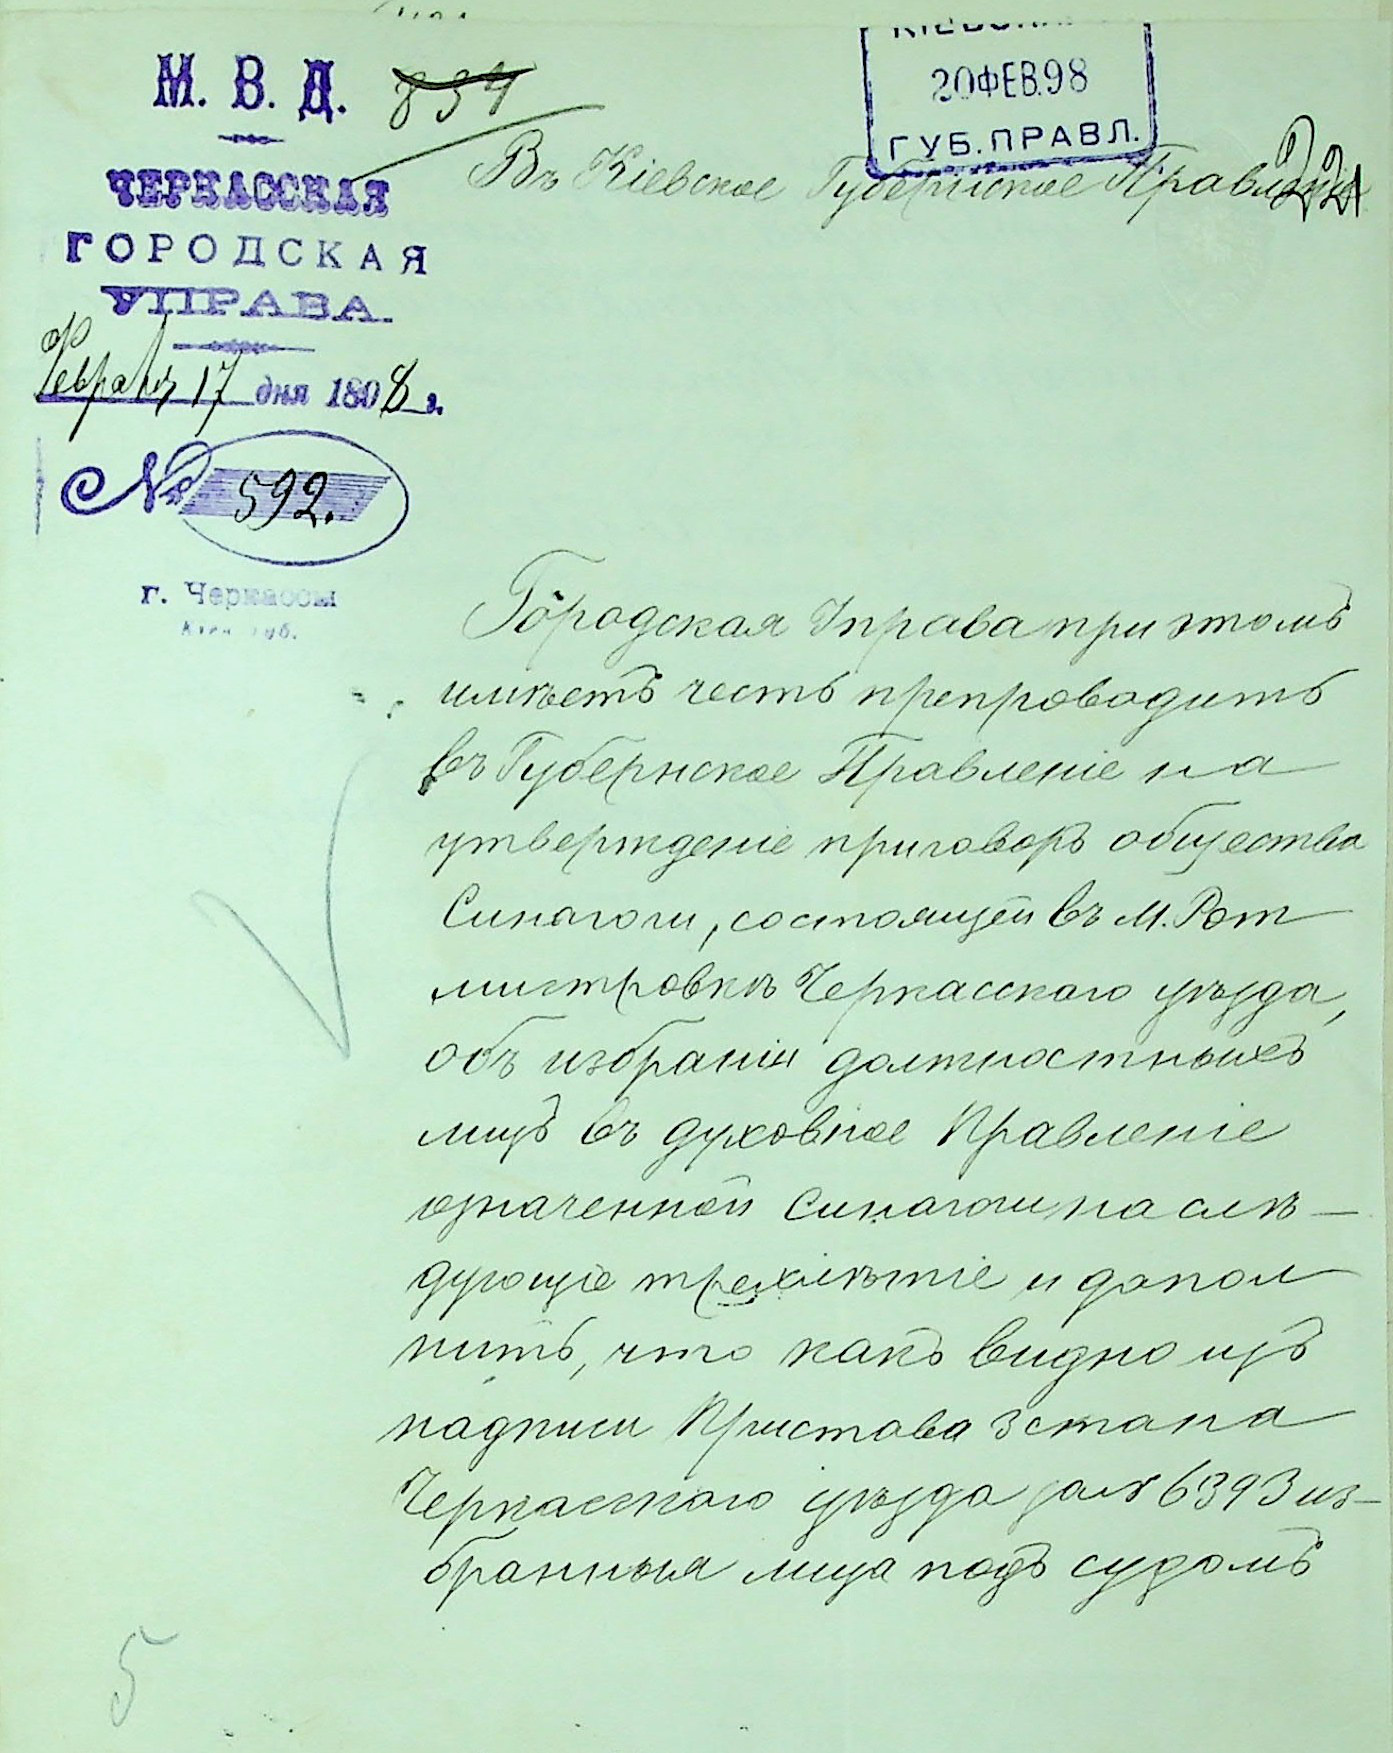 М. В. Д.
834
ЧЕРКАССКАЯ
ГОРОДСКАЯ
УПРАВА.
Февраля 17 дня 1898 г.
№ 592.
г. Черкассы
Кіев. губ.
20 ФЕВ. 98
ГУБ. ПРАВЛ.
221
Въ Кіевское Губернское Правленіе
Городская Управа при этомъ
имѣетъ честь препроводить
въ Губернское Правленіе на
утвержденіе приговоръ общества
Синагоги, состоящей въ м. Рот
мистровкѣ Черкасскаго уѣзда,
объ избраніи должностныхъ
лицъ въ духовное Правленіе
означенной Синагоги на слѣ–
дующіе трехлѣтіе и допол
нить, что какъ видно изъ
надписи Пристава 3 стана
Черкасскаго уѣзда за № 6393 из–
бранныя лица подъ судомъ
5